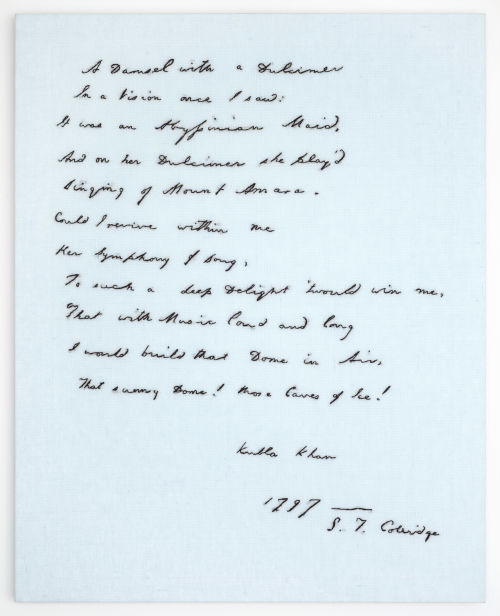 A Damsel with a Dulcimer
In a Vision once I saw:
It was an Abyssinian Maid,
And on her Dulcimer she play'd
Singing of Mount Amara.
Could I revive within me
Her Symphony & Song,
To such a deep Delight 'twould win me,
That with Music loud and long
I would build that Dome in Air,
That sunny Dome! those Caves of Ice!
Kubla Khan
1797
S. T. Coleridge